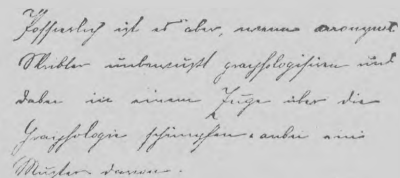 Possierlich ist es aber, wenn anonyme
Skribler unbewusst graphologisiren und
dabei in einem Zuge über die
Graphologie schimpfen. anbei ein
Muster davon.